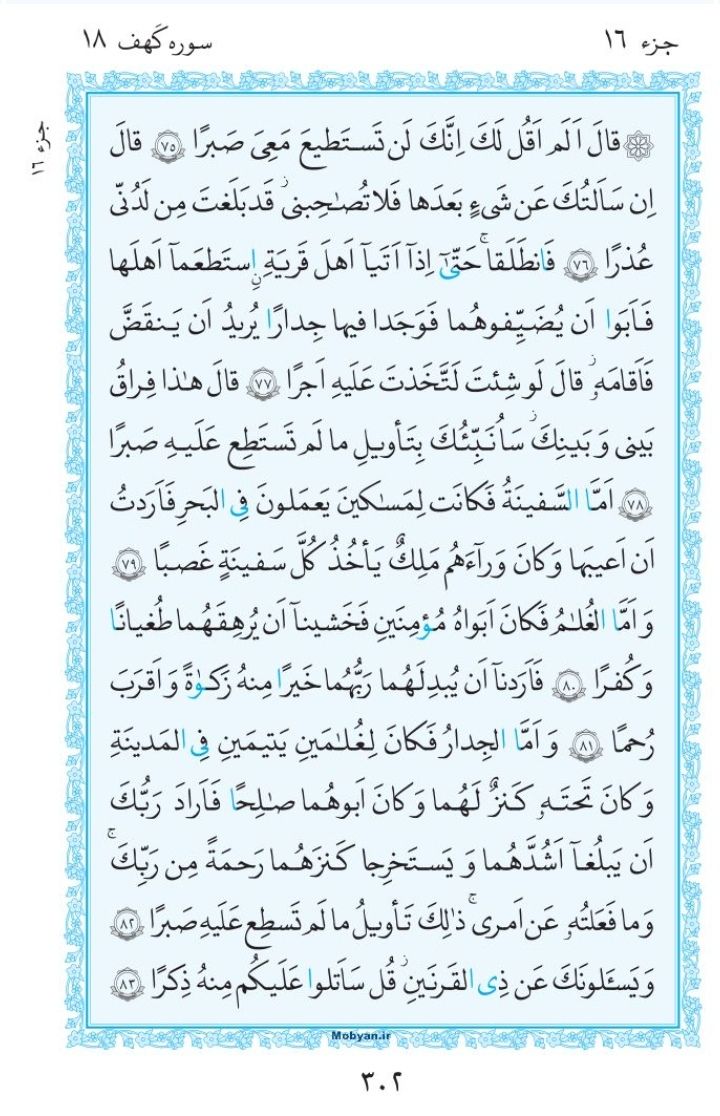 جزء ١٦
سوره کَهف ١٨
جزء ١٦
قالَ اَلَم اَقُل لَكَ اِنَّكَ لَن تَستَطيعَ مَعِیَ صَبرًا ﴿٧٥﴾ قالَ
اِن سَاَلتُكَ عَن شَیءٍ بَعدَها فَلا تُصـٰحِبنی ۖ قَد بَلَغتَ مِن لَدُنّی
عُذرًا ﴿٧٦﴾ فَانطَلَقا حَتّیٰٓ اِذآ اَتَیآ اَهلَ قَریَةِ ِۨاستَطعَمآ اَهلَها
فَاَبَوا اَن یُضَیِّفوهُما فَوَجَدا فیها جِدارًا یُریدُ اَن یَنقَضَّ
فَاَقامَهٗ ۖ قالَ لَو شِئتَ لَتَّخَذتَ عَلَیهِ اَجرًا ﴿٧٧﴾ قالَ هـٰذا فِراقُ
بَینی وَ بَینِكَ ۚ سَاُنَبِّئُكَ بِتَأویلِ ما لَم تَستَطِع عَلَیهِ صَبرًا
﴿٧٨﴾ اَمَّا السَّفینَةُ فَکانَت لِمَسـٰکینَ یَعمَلونَ فِی البَحرِ فَاَرَدتُ
اَن اَعیبَها وَ کانَ وَرآءَهُم مَلِكٌ یَأخُذُ کُلَّ سَفینَةٍ غَصبًا ﴿٧٩﴾
وَ اَمَّا الغُلـٰمُ فَکانَ اَبَواهُ مُؤمِنَینِ فَخَشینآ اَن یُرهِقَهُما طُغیانًا
وَ کُفرًا ﴿٨٠﴾ فَاَرَدنآ اَن یُبدِلَهُما رَبُّهُما خَیرًا مِنهُ زَکوٰةً وَ اَقرَبَ
رُحمًا ﴿٨١﴾ وَ اَمَّا الجِدارُ فَکانَ لِغُلـٰمَینِ یَتیمَینِ فِی المَدینَةِ
وَ کانَ تَحتَهٗ کَنزٌ لَهُما وَ کانَ اَبوهُما صـٰلِحًا فَاَرادَ رَبُّكَ
اَن یَبلُغآ اَشُدَّهُما وَ یَستَخرِجا کَنزَهُما رَحمَةً مِن رَبِّكَ ۚ
وَ ما فَعَلتُهٗ عَن اَمری ۚ ذٰلِكَ تَأویلُ ما لَم تَسطِع عَلَیهِ صَبرًا ﴿٨٢﴾
وَ یَسـَٔلونَكَ عَن ذِی القَرنَینِ ۖ قُل سَاَتلوا عَلَیکُم مِنهُ ذِکرًا ﴿٨٣﴾
Mobyan.ir
٣٠٢